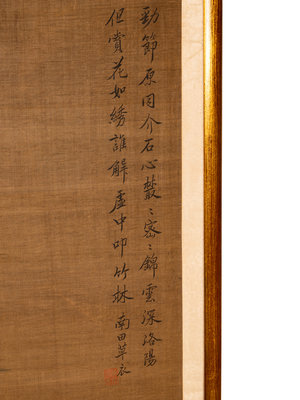 勁節原同介石心叢〻密〻錦雲深洛陽
但賞花如綉誰解虛中叩竹林 南田草衣